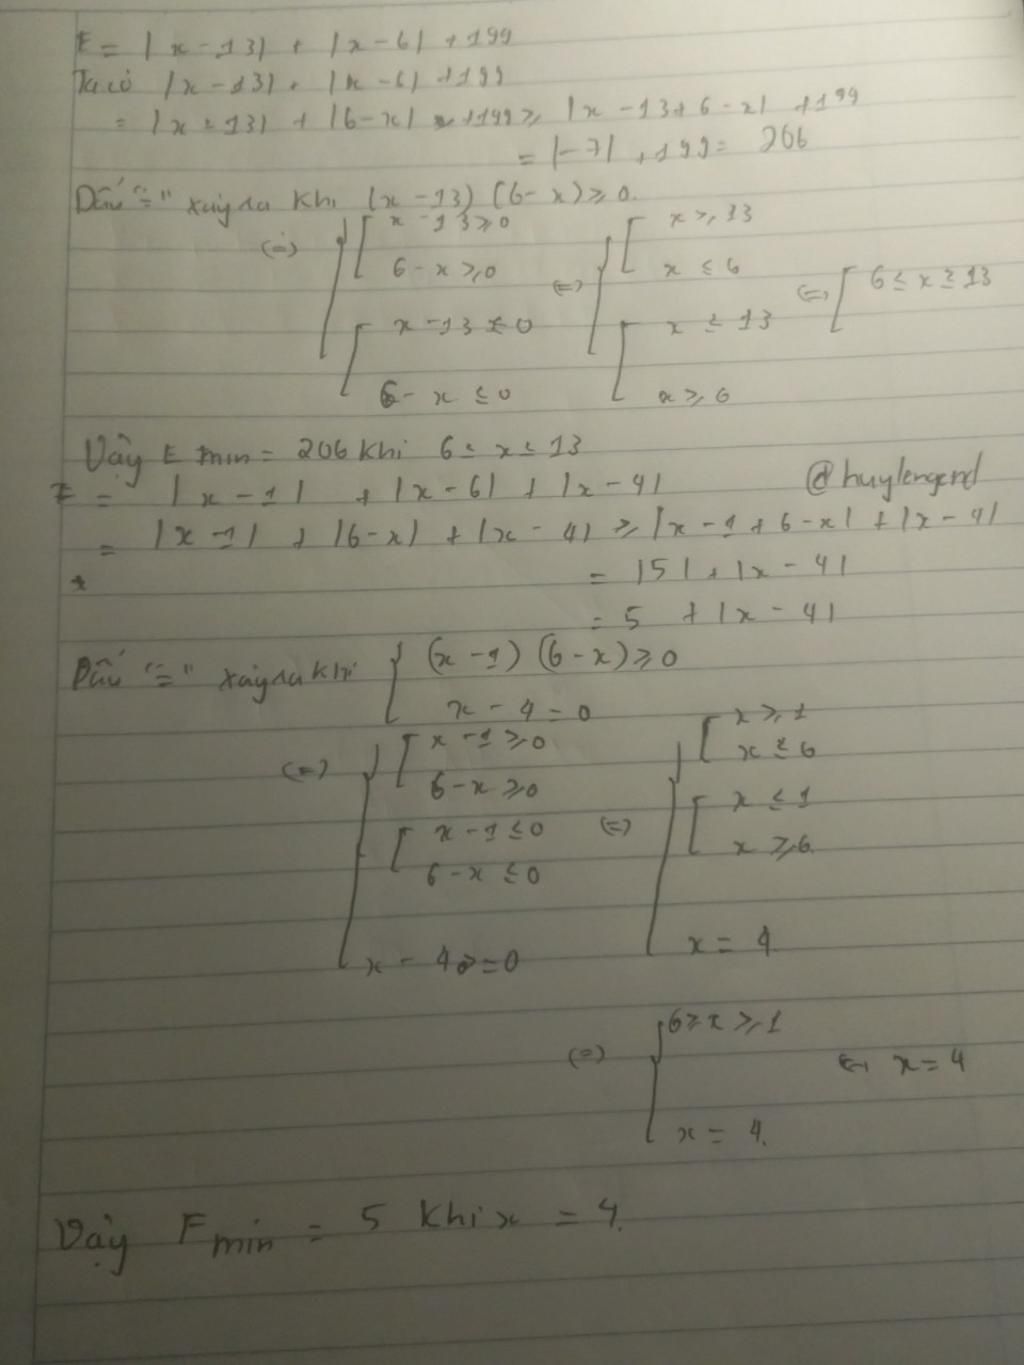 E = |x - 13| + |x - 6| + 199
Ta có |x - 13| + |x - 6| + 199
= |x - 13| + |6 - x| + 199 ≥ |x - 13 + 6 - x| + 199
= |-7| + 199 = 206
Dấu "=" xảy ra khi (x - 13) (6 - x) ≥ 0.
(=) { [ x - 13 ≥ 0 (=) { [ x ≥ 13
6 - x ≥ 0 x ≤ 6 (=) [ 6 ≤ x ≥ 13
[ x - 13 ≤ 0 [ x ≤ 13
6 - x ≤ 0 x ≥ 6
Vậy E min = 206 khi 6 ≤ x ≤ 13
F = |x - 1| + |x - 6| + |x - 4| @huylengend
= |x - 1| + |6 - x| + |x - 4| ≥ |x - 1 + 6 - x| + |x - 4|
= |5| + |x - 4|
= 5 + |x - 4|
Dấu "=" xảy ra khi { (x - 1) (6 - x) ≥ 0
x - 4 = 0
(=) { [ x - 1 ≥ 0 (=) { [ x ≥ 1
6 - x ≥ 0 x ≤ 6
[ x - 1 ≤ 0 [ x ≤ 1
6 - x ≤ 0 x ≥ 6.
x - 4 = 0 x = 4
(=) { 6 ≥ x ≥ 1 (=) x = 4
x = 4.
Vậy F min = 5 khi x = 4.